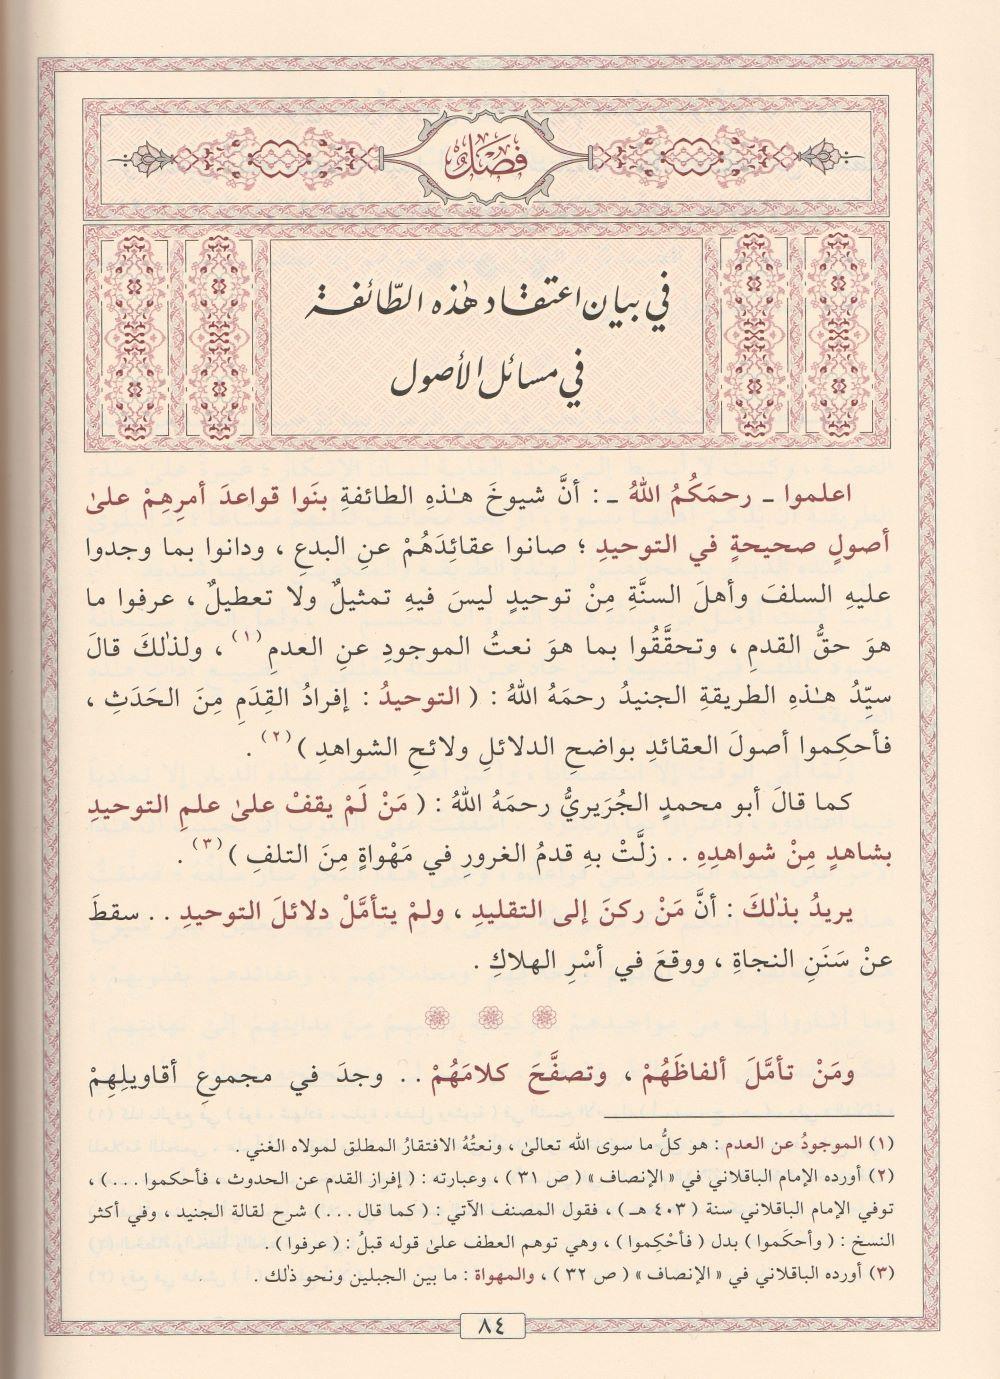 فصل
في بيان اعتقاد هٰذه الطّائفة
في مسائل الأصول
اعلموا ـ رحمَكُمُ اللهُ ـ : أنَّ شيوخَ هـٰذهِ الطائفةِ بنَوا قواعدَ أمرِهِمْ علىٰ
أصولٍ صحيحةٍ في التوحيدِ ؛ صانوا عقائِدَهُمْ عنِ البدعِ ، ودانوا بما وجدوا
عليهِ السلفَ وأهلَ السنَّةِ مِنْ توحيدٍ ليسَ فيهِ تمثيلٌ ولا تعطيلٌ ، عرفوا ما
هوَ حقُّ القدمِ ، وتحقَّقُوا بما هوَ نعتُ الموجودِ عنِ العدمِ (١) ، ولذٰلكَ قالَ
سيِّدُ هـٰذهِ الطريقةِ الجنيدُ رحمَهُ اللهُ : ( التوحيدُ : إفرادُ القِدَمِ مِنَ الحَدَثِ ،
فأحكِموا أصولَ العقائدِ بواضحِ الدلائلِ ولائحِ الشواهدِ ) (٢) .
كما قالَ أبو محمدٍ الجُرَيريُّ رحمَهُ اللهُ : ( مَنْ لَمْ يقفْ علىٰ علمِ التوحيدِ
بشاهدٍ مِنْ شواهدِهِ . . زلَّتْ بهِ قدمُ الغرورِ في مَهْواةٍ مِنَ التلفِ ) (٣) .
يريدُ بذٰلكَ : أنَّ مَنْ ركنَ إلى التقليدِ ، ولمْ يتأمَّلْ دلائلَ التوحيدِ . . سقطَ
عنْ سَنَنِ النجاةِ ، ووقعَ في أسْرِ الهلاكِ .
ومَنْ تأمَّلَ ألفاظَهُمْ ، وتصفَّحَ كلامَهُمْ . . وجدَ في مجموعِ أقاويلِهِمْ
(١) الموجودُ عن العدم : هو كلُّ ما سوى الله تعالىٰ ، ونعتُهُ الافتقارُ المطلق لمولاه الغني .
(٢) أورده الإمام الباقلاني في « الإنصاف » ( ص ٣١ ) ، وعبارته : ( إفراز القدم عن الحدوث ، فأحكموا . . . ) ،
توفي الإمام الباقلاني سنة ( ٤٠٣ هـ ) ، فقول المصنف الآتي : ( كما قال . . . ) شرح لقالة الجنيد ، وفي أكثر
النسخ : ( وأحكَموا ) بدل ( فأحْكِموا ) ، وهي توهم العطف علىٰ قوله قبلُ : ( عرفوا ) .
(٣) أورده الباقلاني في « الإنصاف » ( ص ٣٢ ) ، والمهواة : ما بين الجبلين ونحو ذٰلك .
٨٤